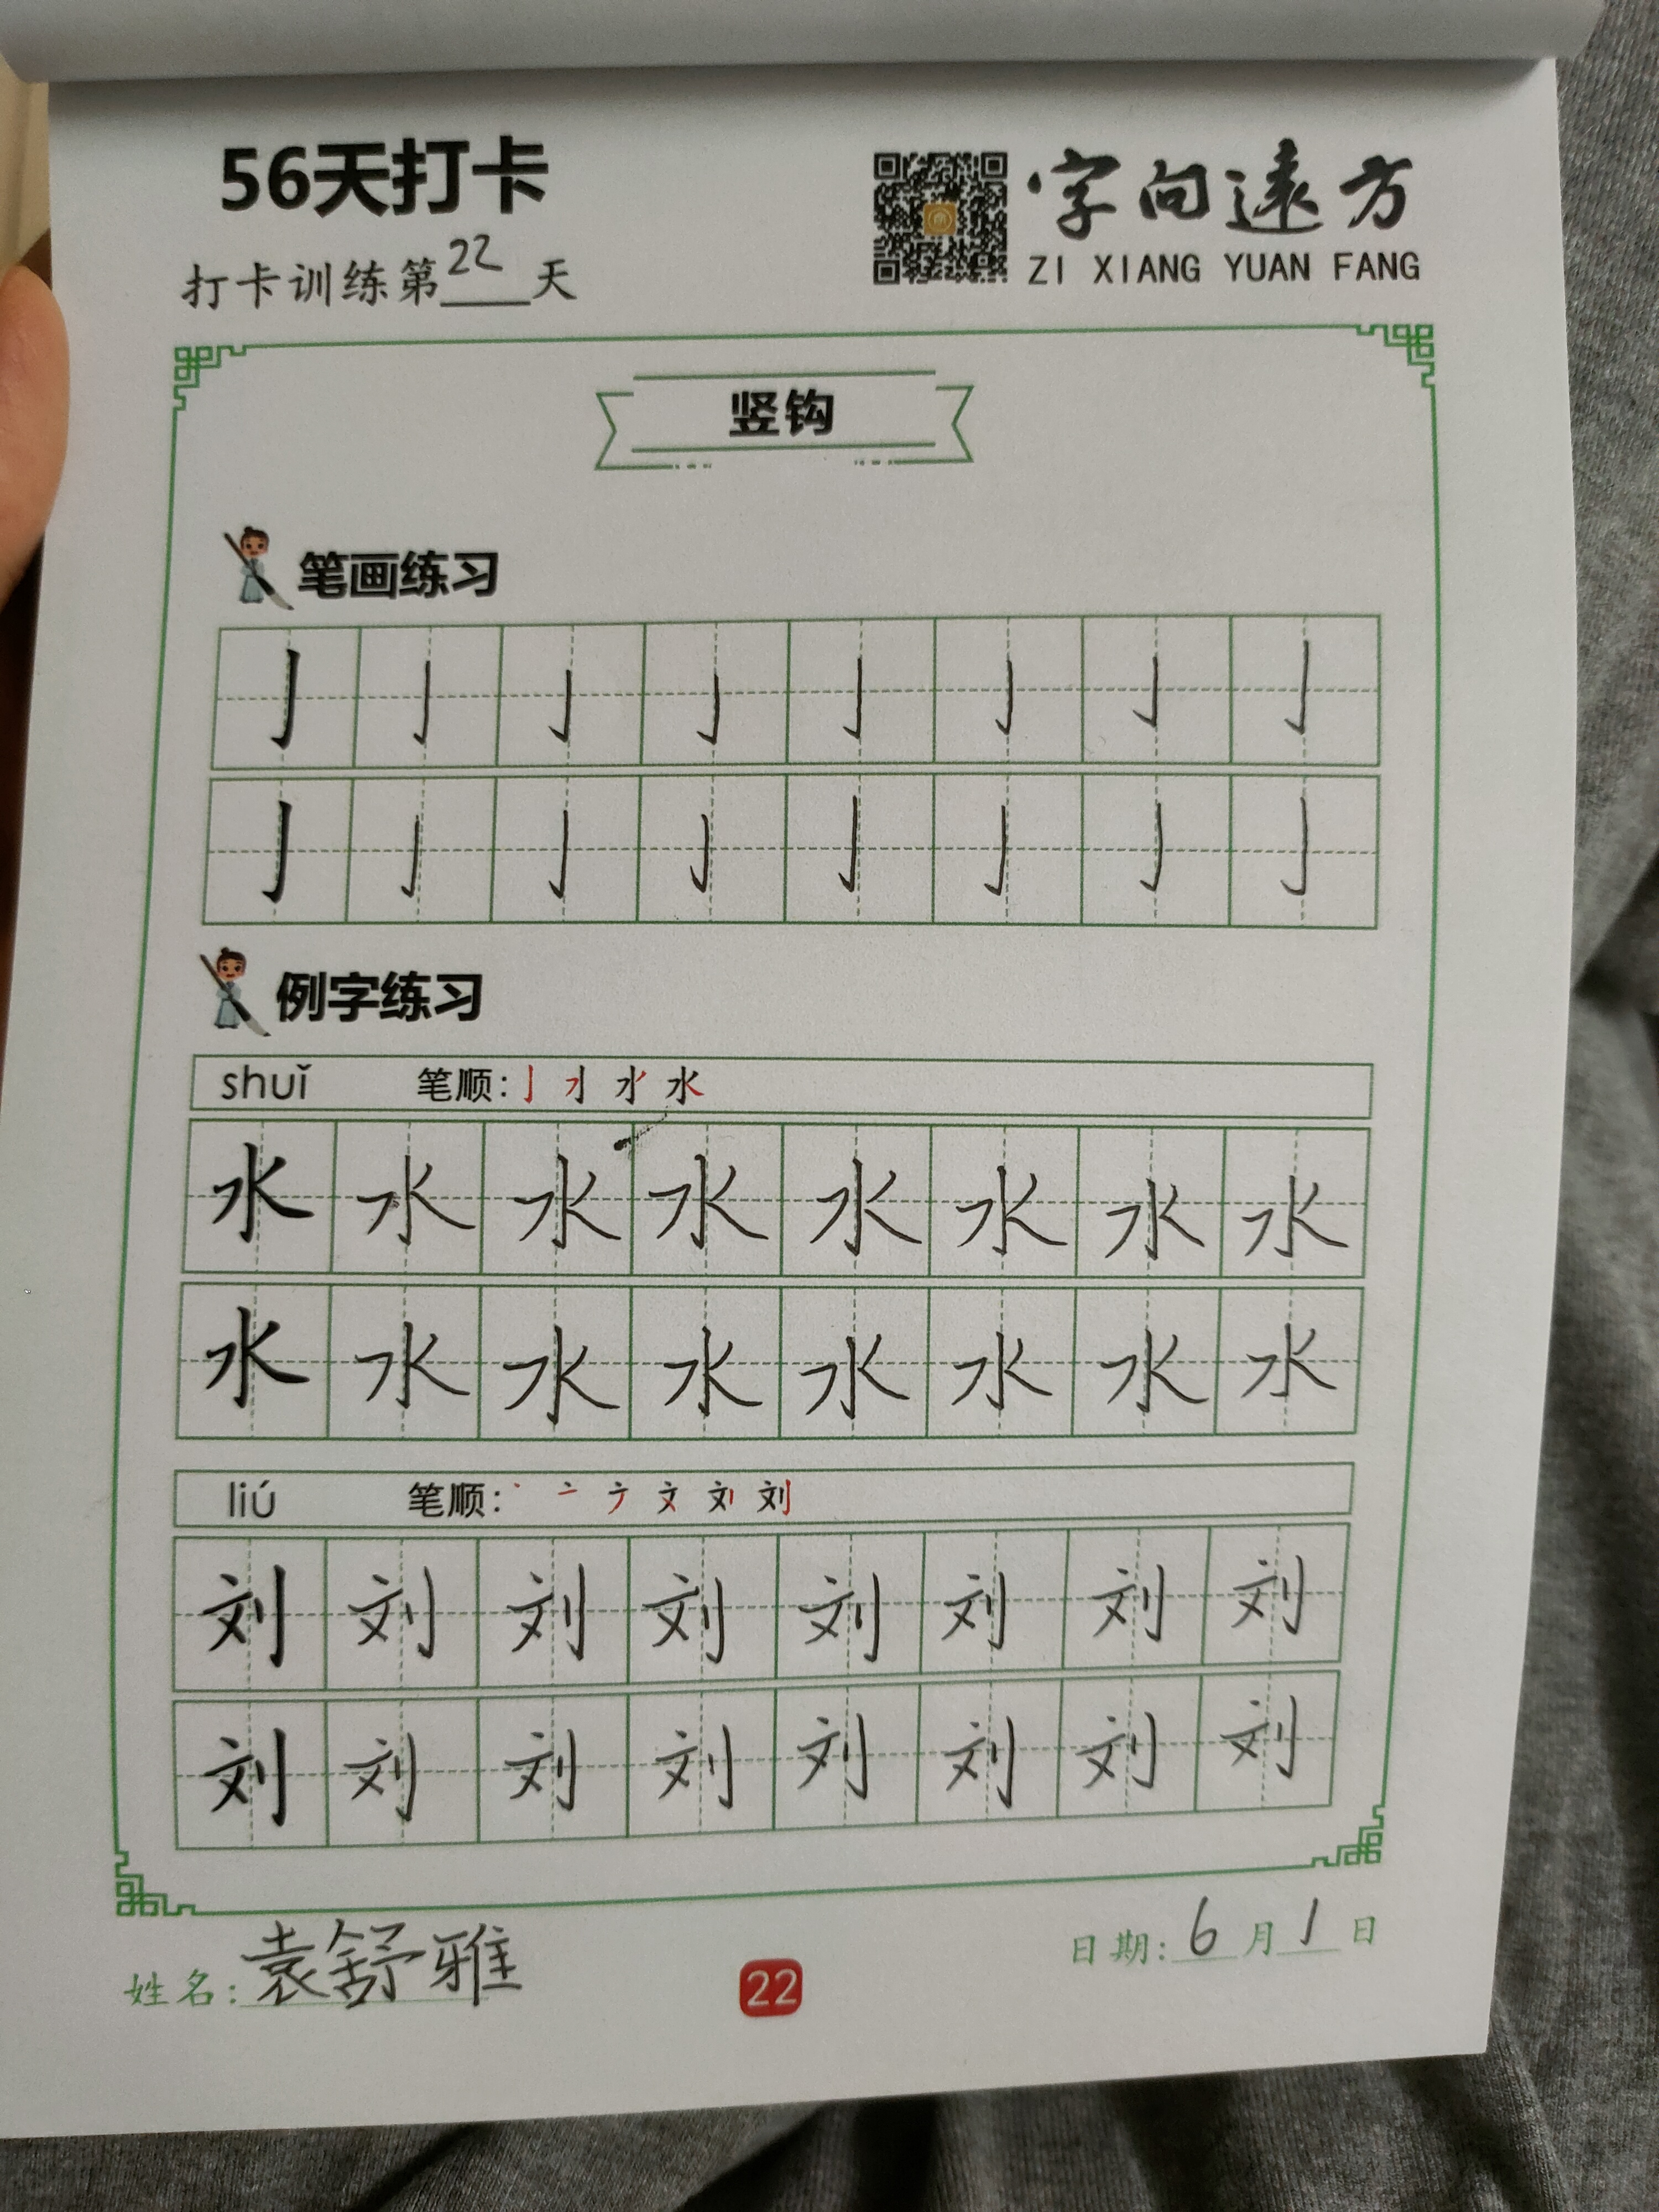 56天打卡
字向遠方
ZI XIANG YUAN FANG
打卡训练第22天
竖钩
笔画练习
亅亅亅亅亅亅亅亅
亅亅亅亅亅亅亅亅
例字练习
shuǐ 笔顺: 水
水水水水水水水水
水水水水水水水水
liú 笔顺: 丶 亠 文 刘
刘刘刘刘刘刘刘刘
刘刘刘刘刘刘刘刘
姓名: 袁舒雅
22
日期: 6月1日